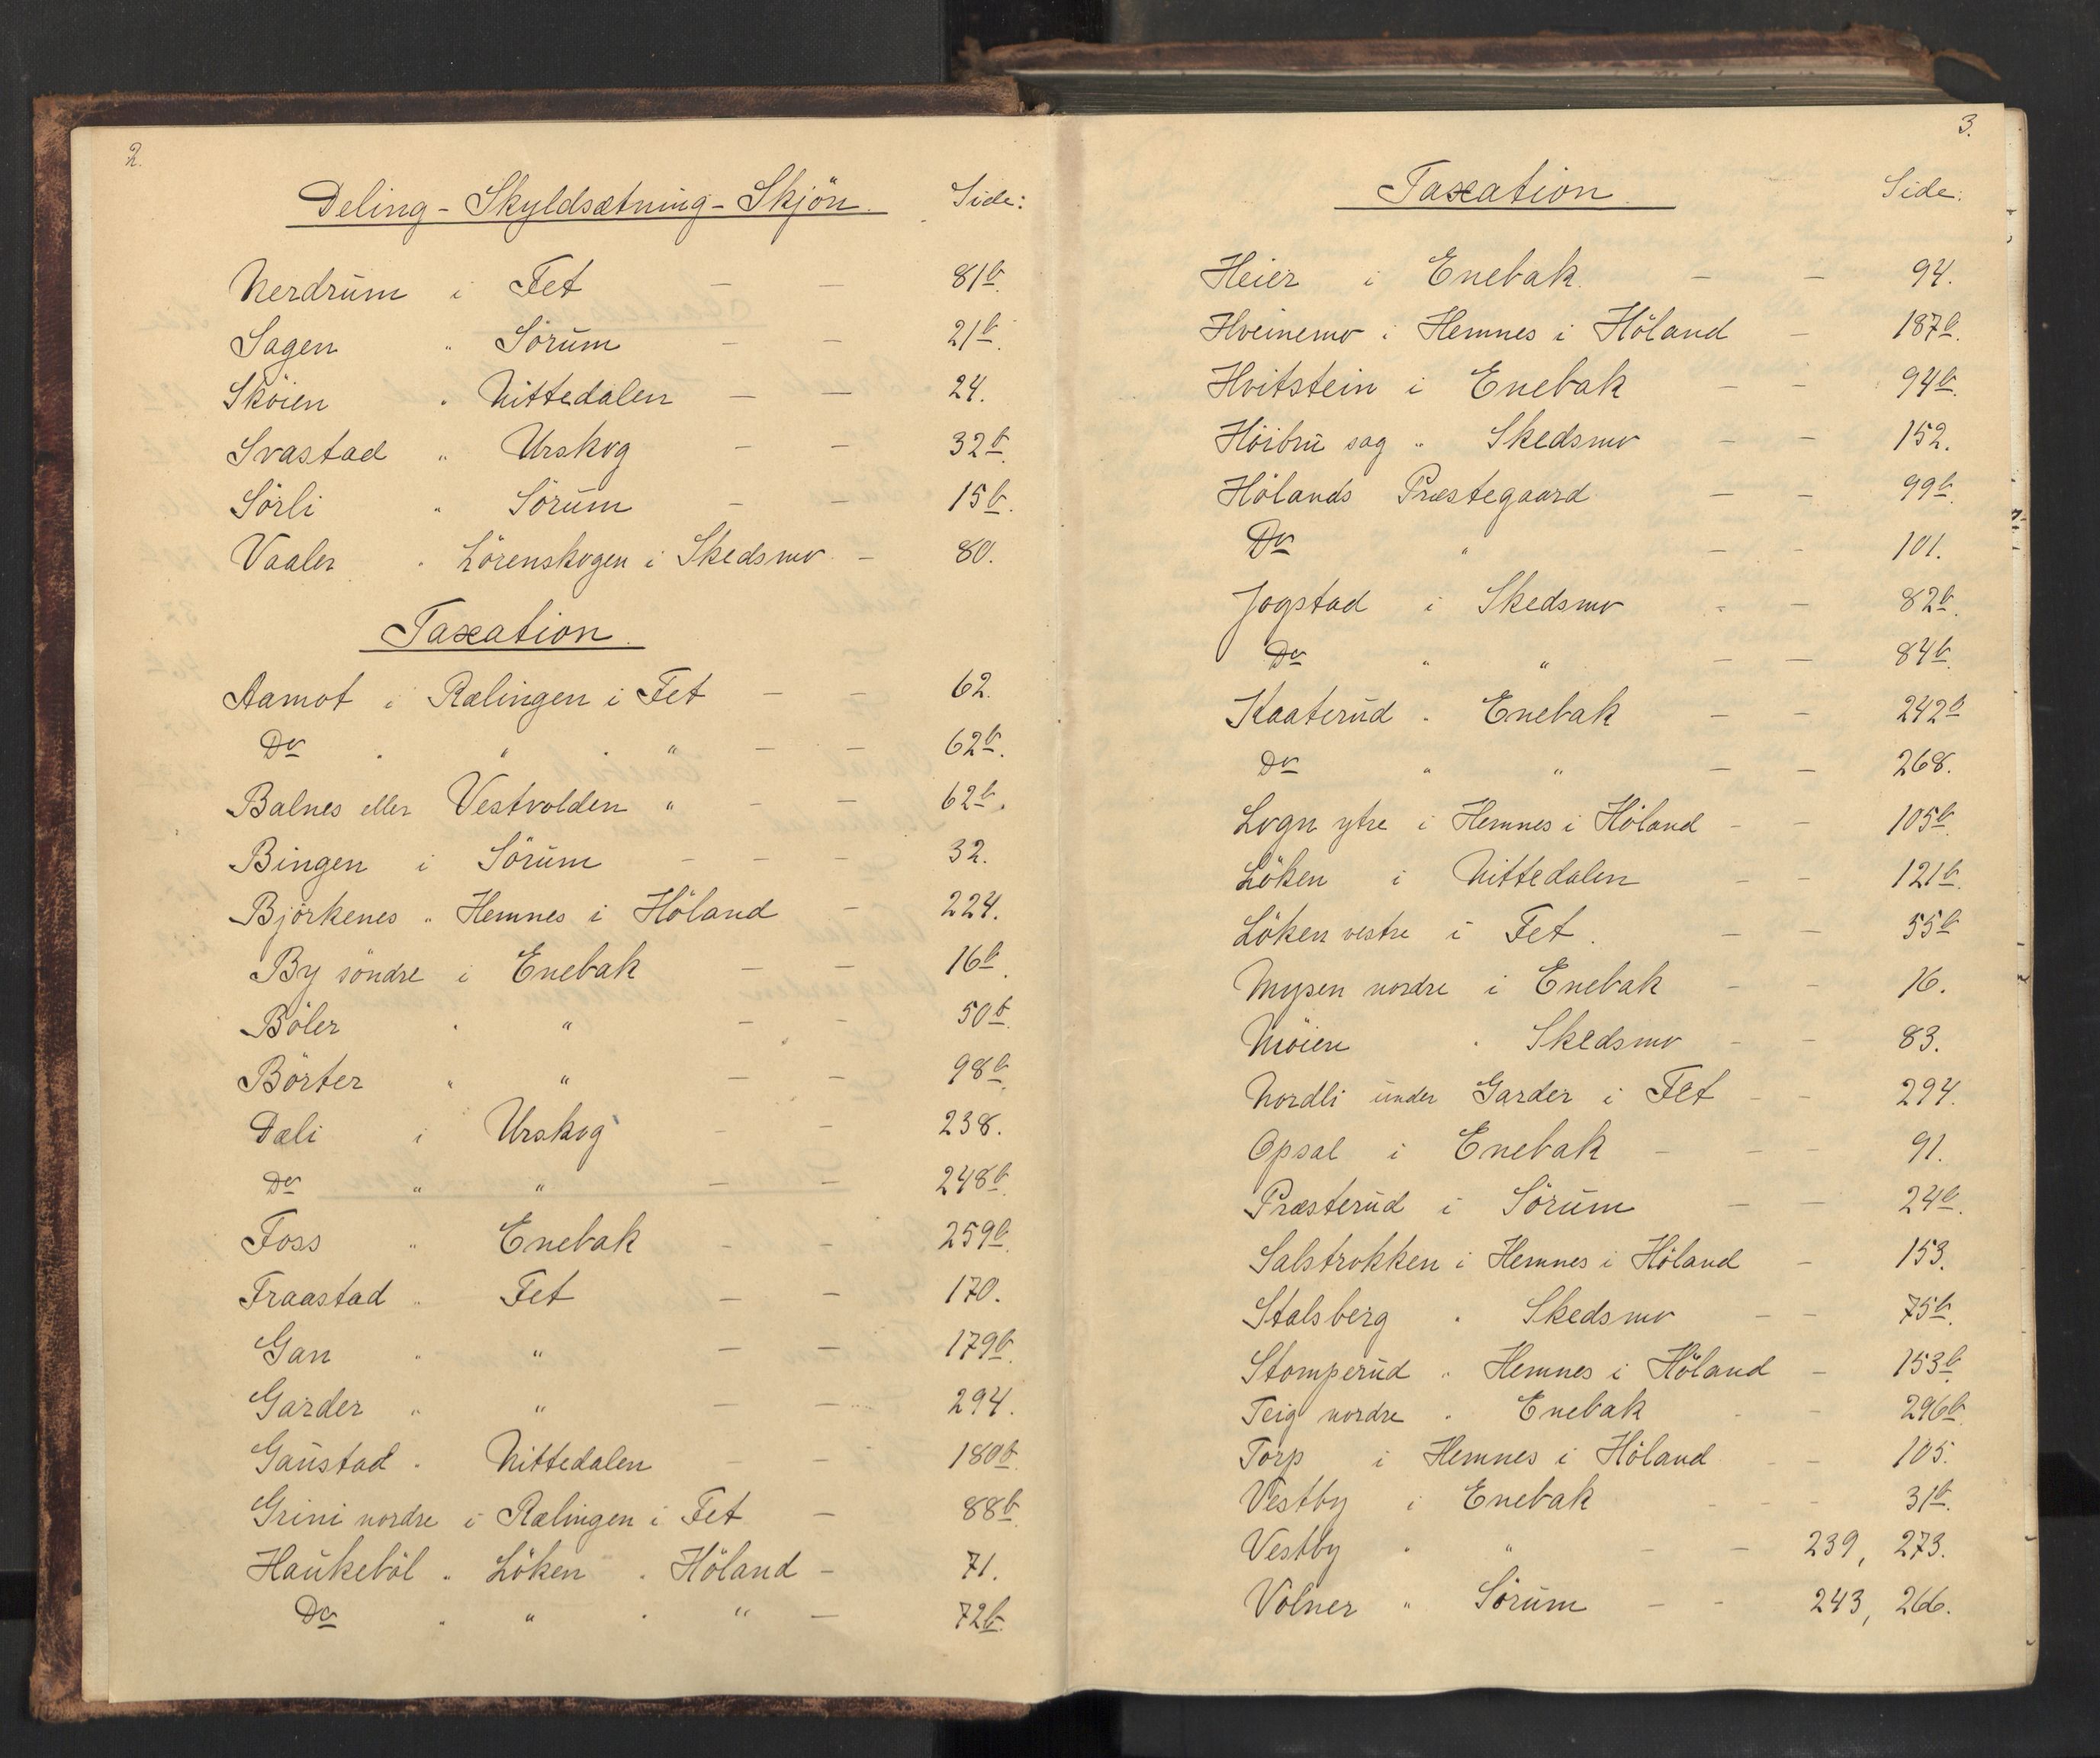 2.
Deling - Skyldsætning - Skjön. Side:
Nerdrum i Fet — — 81b.
Sagen " Sörum — — 21b.
Sköien " Nittedalen — — 24.
Svastad " Urskog — — 32b.
Sörli " Sörum — — 15b.
Vaaler " Lörenskogen i Skedsmo — 80.
Taxation.
Aamot i Rælingen i Fet — — 62.
Do " " " " — — 62b.
Balnes eller Vestvolden " — — 62b.
Bingen i Sörum — — — 32.
Björkenes " Hemnes i Höland — 224.
By söndre i Enebak — — 16b.
Böler " " — — 50b.
Börter " " — — 98b.
Dæli i Urskog — — 238.
Do " " — — 248b.
Foss " Enebak — — 259b.
Fraastad " Fet — — 170.
Gan " " — — 179b.
Garder " " — — 294.
Gaustad " Nittedalen — — 180b.
Grini nordre i Rælingen i Fet — 88b.
Haukeböl " Löken " Höland — 71.
Do " " " " — 72b.
3.
Taxation. Side:
Heier i Enebak. — — 94.
Hveinemo i Hemnes i Höland — 187b.
Hvitstein i Enebak — — 94b.
Höibru sag " Skedsmo — — 152.
Hölands Præstegaard — — 99b.
Do " — — 101.
Jogstad i Skedsmo — — 82b.
Do " " — — 84b.
Kaaterud " Enebak — — 242b
Do " " — — 268.
Logn ytre i Hemnes i Höland — — 105b.
Löken i Nittedalen — — 121b.
Löken vestre i Fet. — — 55b
Mysen nordre i Enebak — — 16.
Möien " Skedsmo — — 83.
Nordli under Garder i Fet — — 294.
Opsal i Enebak — — — 91.
Præsterud i Sörum — — 24b.
Salstrokken i Hemnes i Höland — 153.
Stalsberg " Skedsmo — — 75b.
Stomperud " Hemnes i Höland — 153b.
Teig nordre " Enebak — — 296b.
Torp i Hemnes i Höland — — 105.
Vestby i Enebak — — — 31b.
Vestby " " — — 239, 273.
Volner " Sörum — — 243, 266.